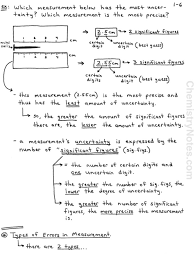 EX: Which measurement below has the most uncer-
tainty? Which measurement is the most precise?
1-6
cm
2.5cm
2 significant figures
certain digit
uncertain digit (best guess)
cm
2.55cm
3 significant figures
certain digits
uncertain digit (best guess)
• this measurement (2.55cm) is the most precise and
thus has the least amount of uncertainty.
↳ so, the greater the amount of significant figures
there are, the lesser the amount of uncertainty.
- a measurement's uncertainty is expressed by the
number of "significant figures" (sig. figs.)
↳ the number of certain digits and
one uncertain digit.
↳ the greater the number of sig. figs,
the lower the degree of uncertainty.
↳ the greater the number of significant
figures, the more precise the measurement
is.
Types of Errors in Measurement
↳ there are 2 types...